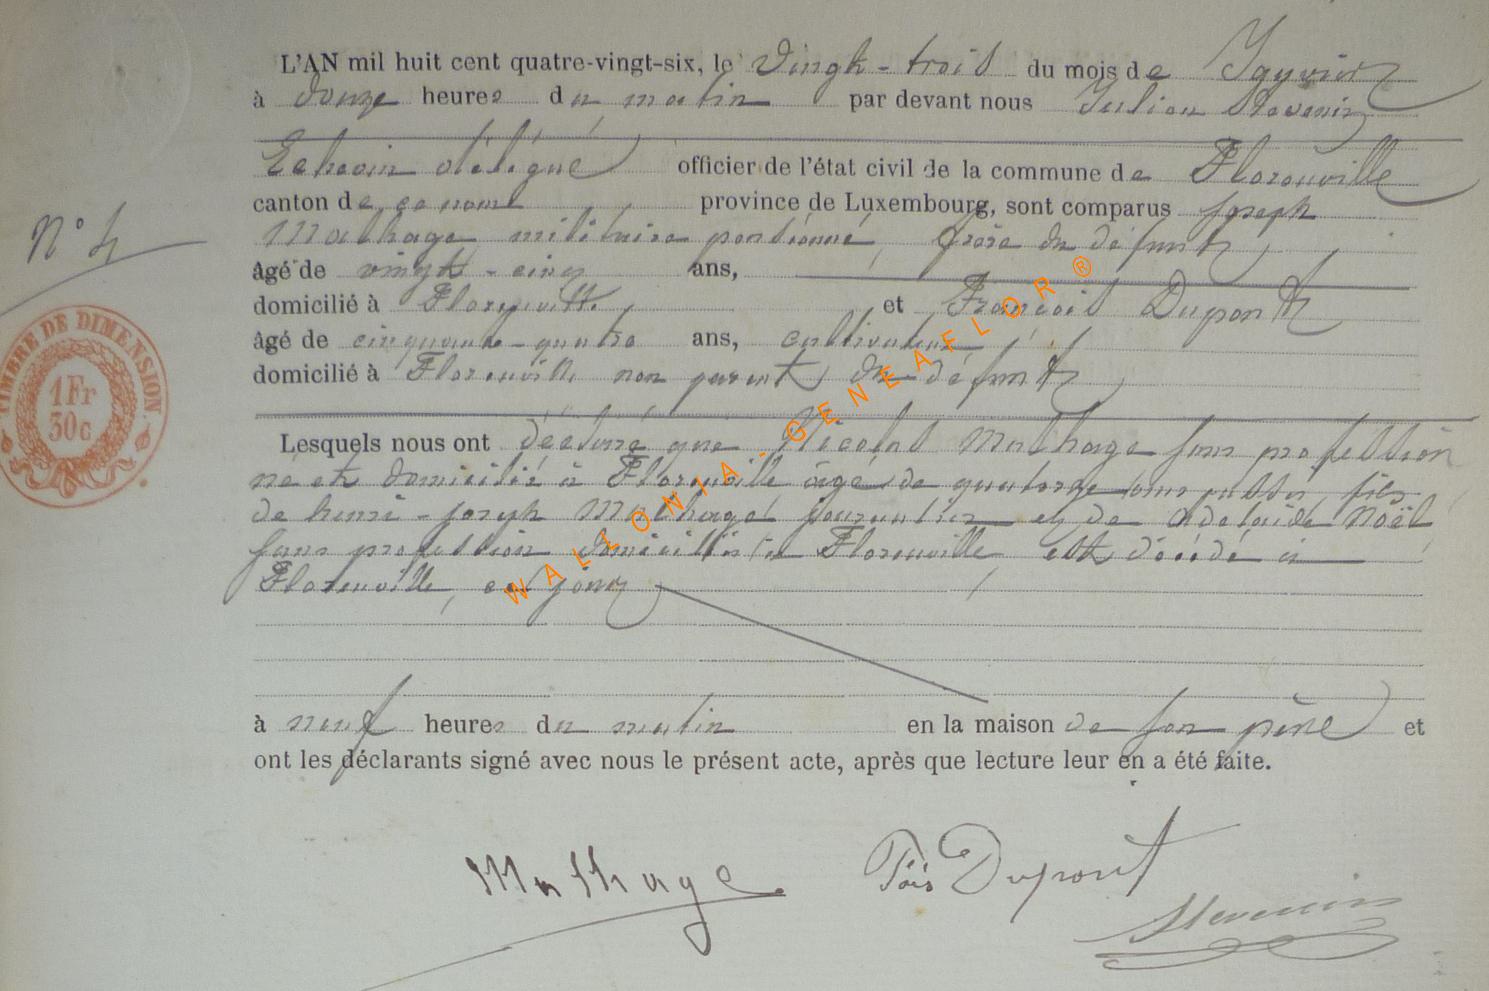 L'AN mil huit cent quatre-vingt-six, le vingt-trois du mois de Janvier
à douze heures du matin par devant nous Julien Stevenin
Echevin délégué officier de l'état civil de la commune de Florenville
canton de ce nom province de Luxembourg, sont comparus Joseph
Malhage militaire pensionné, frère du défunt,
âgé de vingt-cinq ans,
domicilié à Florenville et François Dupont
âgé de cinquante-quatre ans, cultivateur
domicilié à Florenville non parent du défunt,
N° 4
TIMBRE DE DIMENSION.
1Fr
30c
Lesquels nous ont déclaré que Nicolas Malhage sans profession
né et domicilié à Florenville âgé de quatorze ans, fils
de henri-joseph Malhage journalier et de Adelaïde Noël
sans profession domiciliés à Florenville, est décédé à
Florenville, ce jour
à neuf heures du matin en la maison de son père et
ont les déclarants signé avec nous le présent acte, après que lecture leur en a été faite.
Malhage Fçois Dupont
Stevenin
WALLONIA-GENEAFLOR®